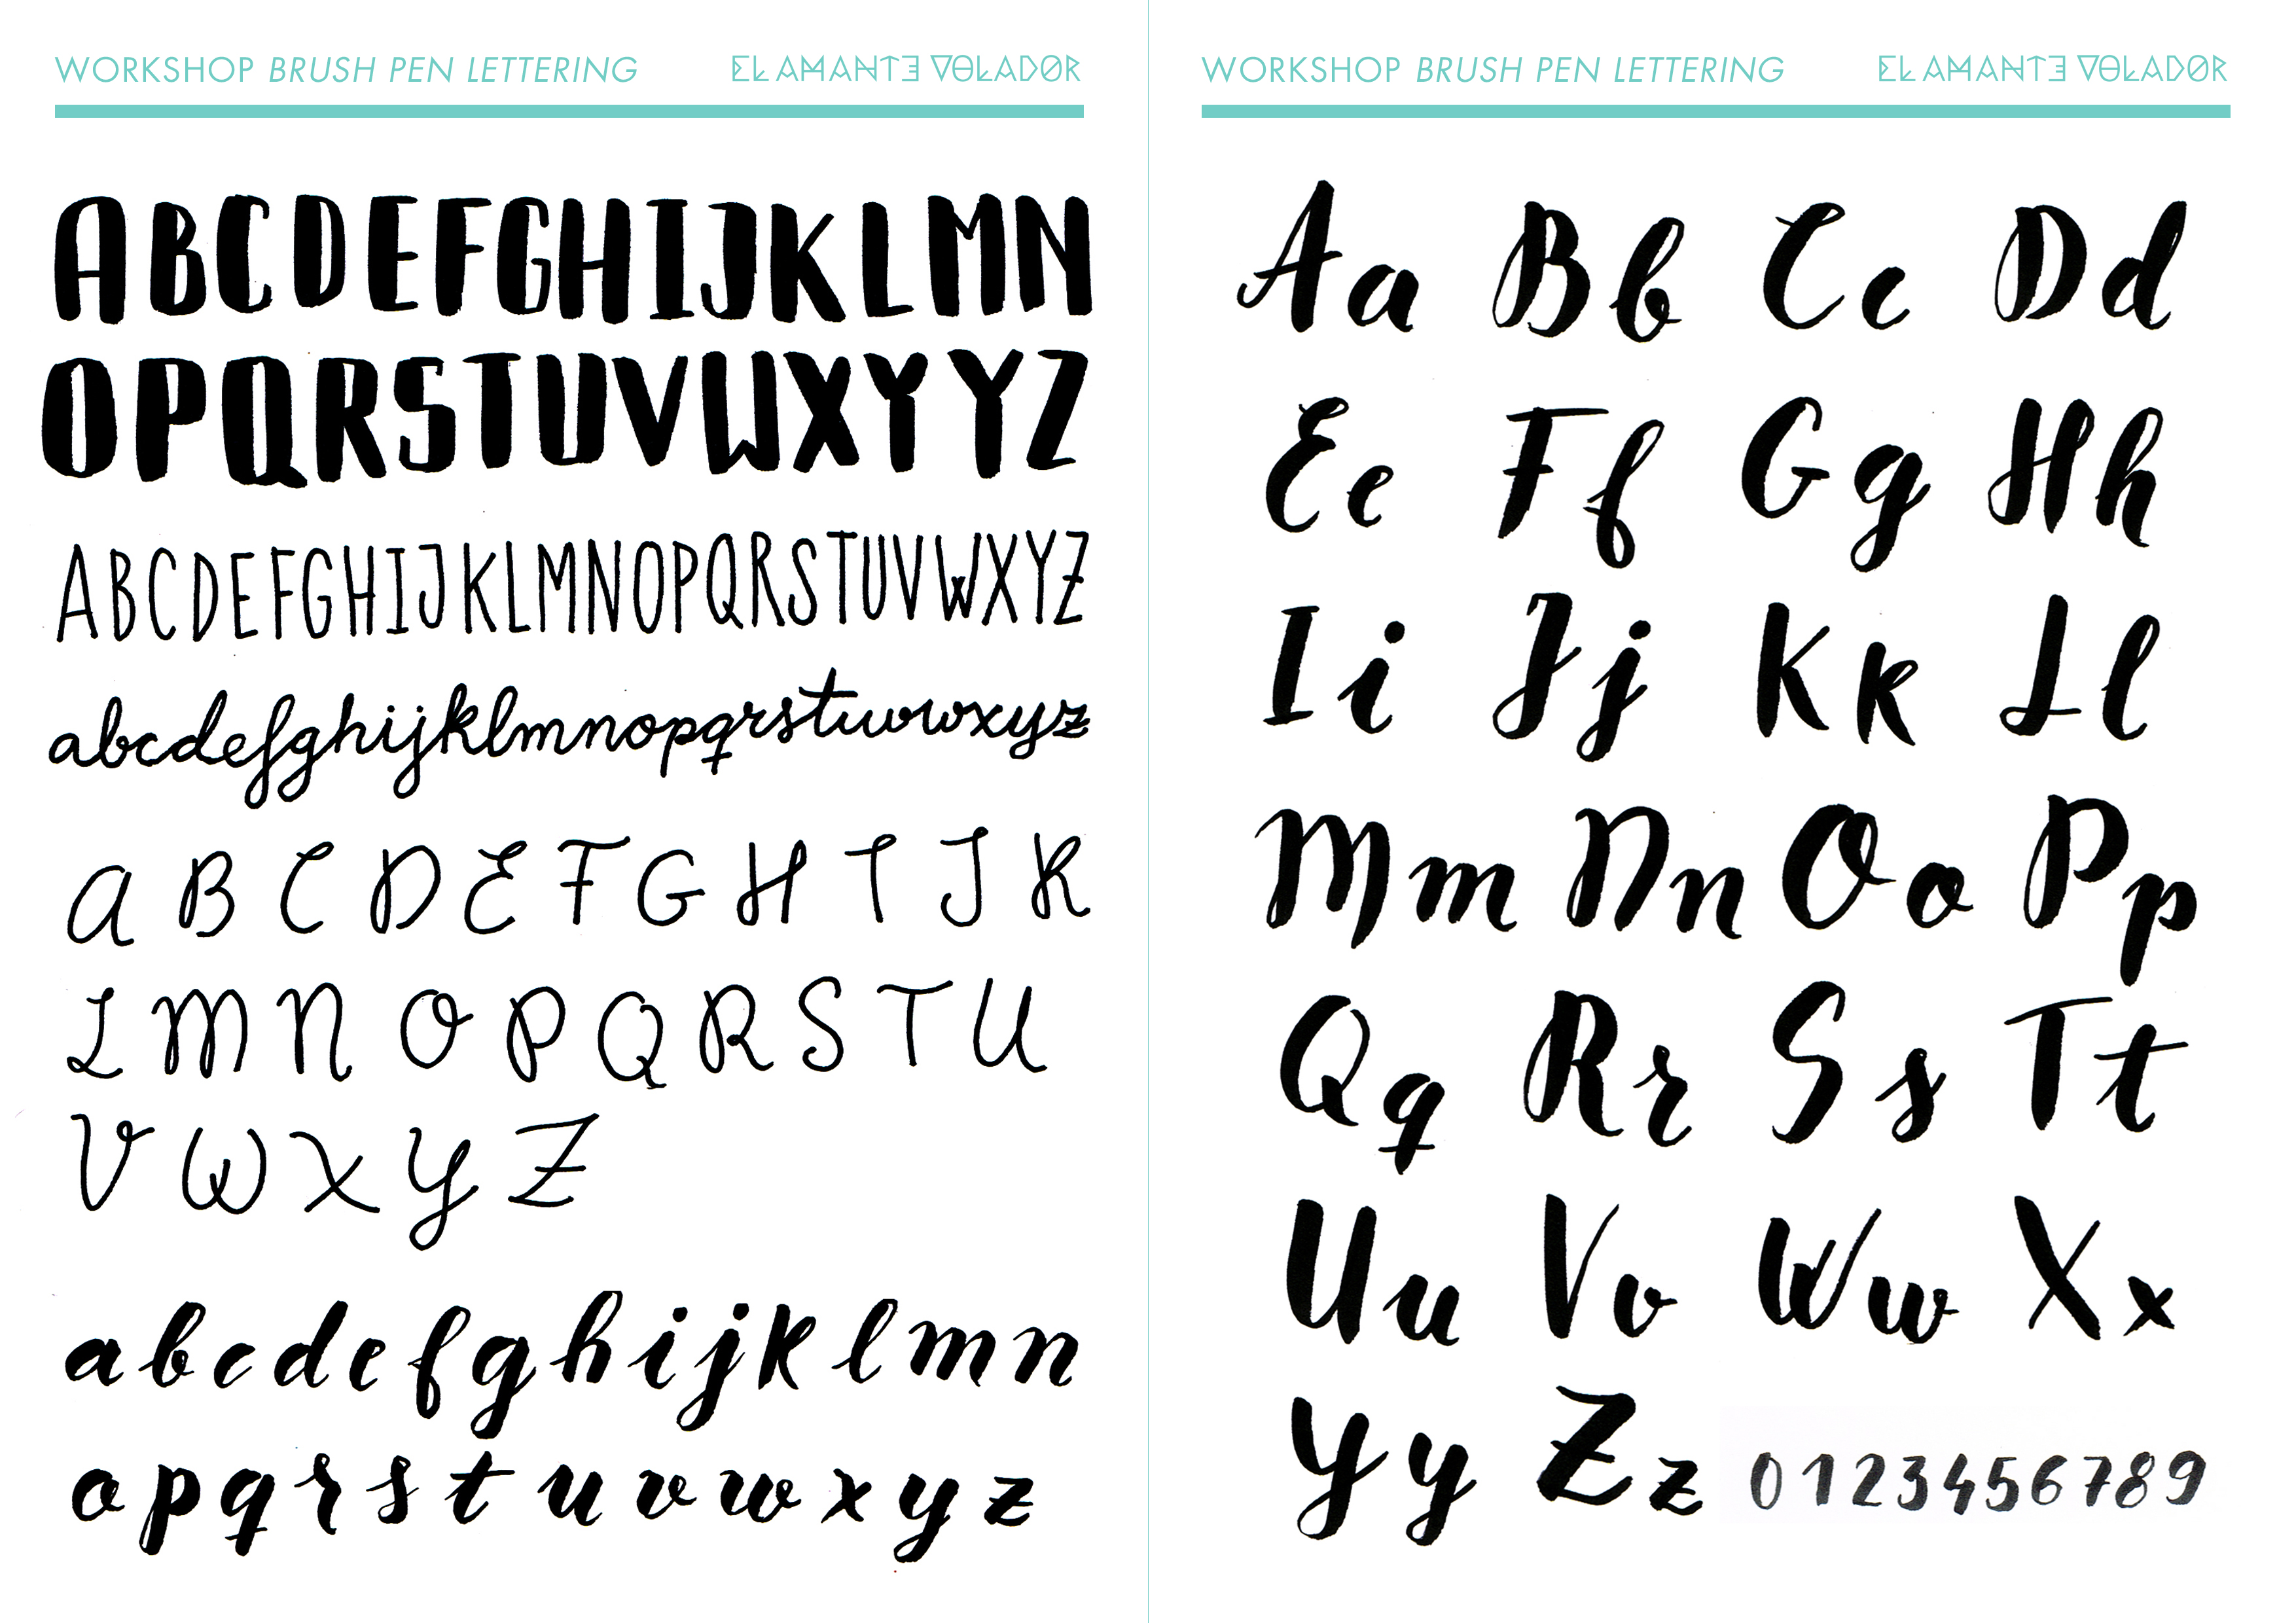 WORKSHOP BRUSH PEN LETTERING
EL AMANTE VOLADOR
ABCDEFGHIJKLMN
OPQRSTUVWXYYZ
ABCDEFGHIJKLMNOPQRSTUVWXYZ
abcdefghijklmnopqrstuvwxyz
A B C D E F G H I J K
L M N O P Q R S T U
V W X Y Z
a b c d e f g h i j k l m n
o p q r s t u v w x y z
WORKSHOP BRUSH PEN LETTERING
EL AMANTE VOLADOR
Aa Bb Cc Dd
Ee Ff Gg Hh
Ii Jj Kk Ll
Mm Nn Oo Pp
Qq Rr Ss Tt
Uu Vv Ww Xx
Yy Zz 0123456789